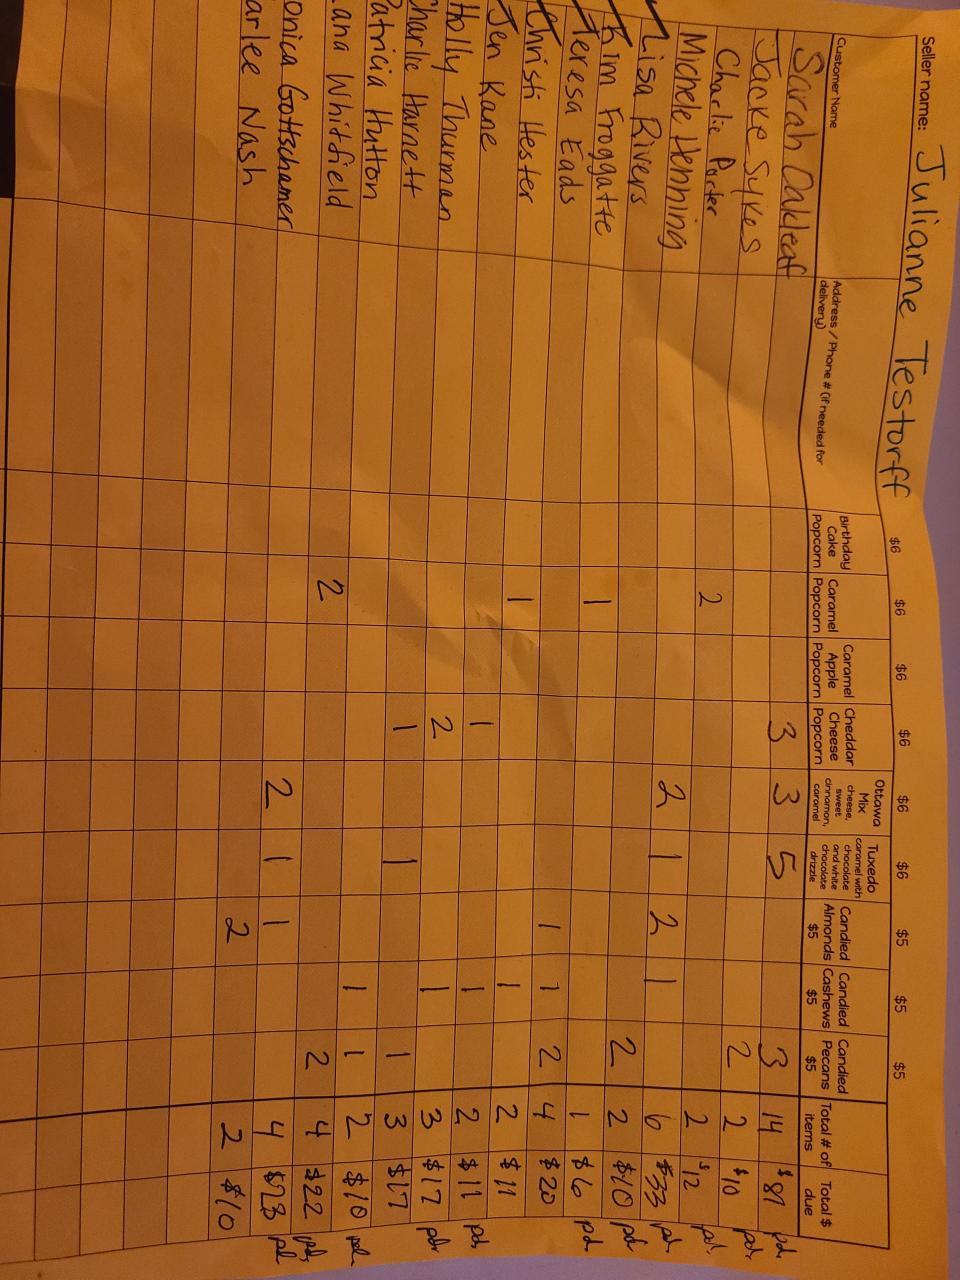 Seller name: Julianne Testorff
$6 $6 $6 $6 $6 $6 $5 $5 $5
Customer Name Address / Phone # (if needed for delivery) Birthday Cake Popcorn Caramel Popcorn Caramel Apple Popcorn Cheddar Cheese Popcorn Ottawa Mix cheese, sweet cinnamon, caramel Tuxedo caramel with chocolate and white chocolate drizzle Candied Almonds $5 Candied Cashews $5 Candied Pecans $5 Total # of items Total $ due
Sarah Oakleaf 3 3 5 3 14 $81 pd.
Jacke Sykes 2 2 $10 pd.
Charlie Porter 2 2 $12 pd.
Michele Henning 2 1 2 1 6 $33 pd.
Lisa Rivers 2 2 $10 pd.
Kim Froggatte 1 1 $6 pd.
Teresa Eads 1 1 2 4 $20
Christi Hester 1 1 2 $11
Jen Kane 1 1 2 $11 pd.
Holly Thurman 2 1 3 $17 pd.
Charlie Harnett 1 1 1 3 $17
Patricia Hutton 1 1 2 $10 pd.
Lana Whitfield 2 2 4 $22 pd.
onica Gottschamer 2 1 1 4 $23 pd.
arlee Nash 2 2 $10